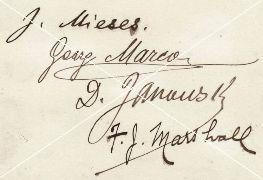 J. Mieses.
Georg Marco
D. Janowski
F. J. Marshall